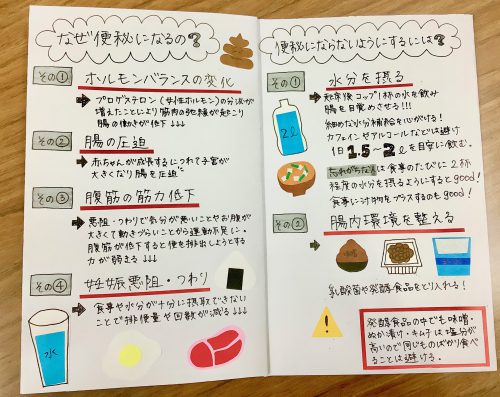 なぜ便秘になるの?
その① ホルモンバランスの変化
➡ プロゲステロン(女性ホルモン)の分泌が
増えたことにより筋肉の弛緩が起こり
腸の働きが低下↓↓↓
その② 腸の圧迫
➡ 赤ちゃんが成長するにつれて子宮が
大きくなり腸を圧迫
その③ 腹筋の筋力低下
➡ 悪阻・つわりで気分が悪いことやお腹が
大きくて動きづらいことから運動不足に。
腹筋が低下すると便を排出しようとする
力が弱まる↓↓
その④ 妊娠悪阻・つわり
➡ 食事や水分が十分に摂取できない
ことで排便量や回数が減る↓↓↓
水
便秘にならないようにするには?
その① 水分を摂る
➡ 起床後コップ1杯の水を飲み
腸を目覚めさせる!!!
細めな水分補給を心がける!
カフェインやアルコールなどは避け
1日1.5~2ℓを目安に飲む。
2ℓ
忘れがちな方は食事のたびに2杯
程度の水分を摂るようにするとgood!
食事に汁物をプラスするのもgood!
その② 腸内環境を整える
➡
味噌
乳酸菌や発酵食品をとり入れる!
発酵食品の中でも味噌・
ぬか漬け・キムチは塩分が
高いので同じものばかり食べ
ることは避ける。